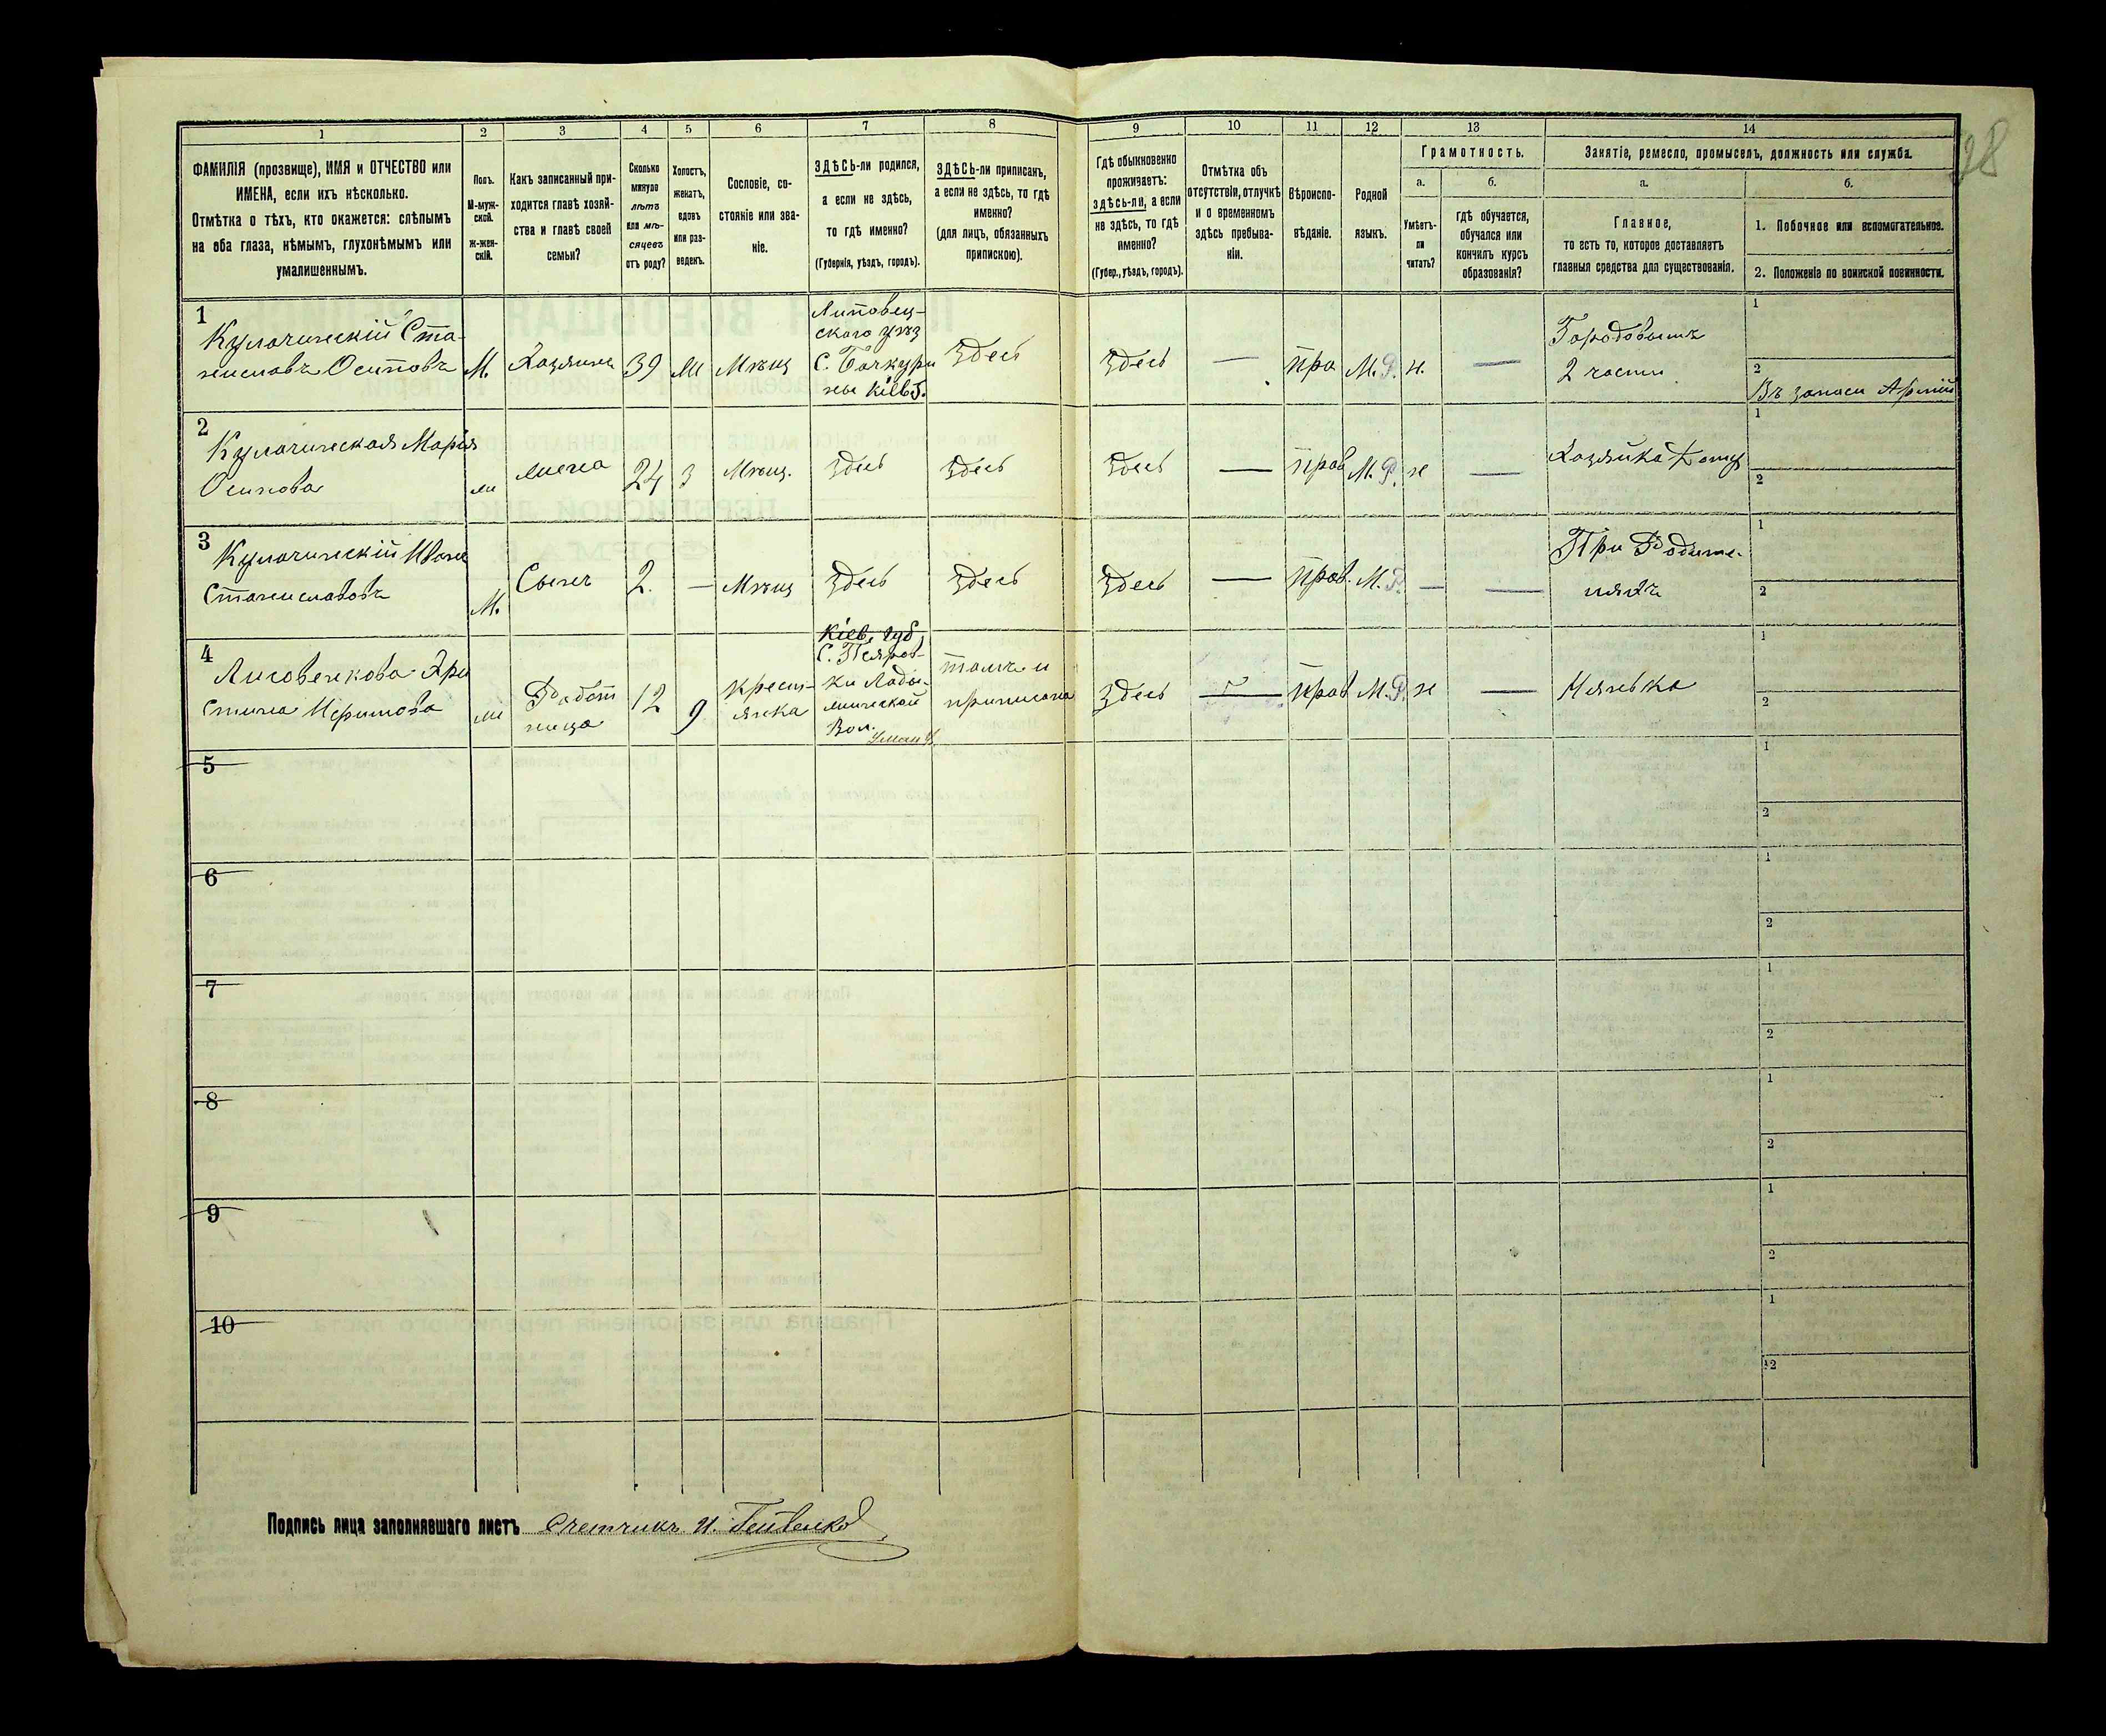 98
1 2 3 4 5 6 7 8 9 10 11 12 13 14
ФАМИЛІЯ (прозвище), ИМЯ и ОТЧЕСТВО или
ИМЕНА, если ихъ нѣсколько.
Отмѣтка о тѣхъ, кто окажется: слѣпымъ
на оба глаза, нѣмымъ, глухонѣмымъ или
умалишеннымъ.
Полъ.
М-муж-
ской.
Ж-жен-
скій.
Какъ записанный при-
ходится главѣ хозяй-
ства и главѣ своей
семьи?
Сколько
минуло
лѣтъ
или мѣ-
сяцевъ
отъ роду?
Холостъ,
женатъ,
вдовъ
или раз-
веденъ.
Сословіе, со-
стояніе или зва-
ніе.
ЗДѢСЬ-ли родился,
а если не здѣсь,
то гдѣ именно?
(Губернія, уѣздъ, городъ).
ЗДѢСЬ-ли приписанъ,
а если не здѣсь, то гдѣ
именно?
(для лицъ, обязанныхъ
припискою).
Гдѣ обыкновенно
проживаетъ:
здѣсь-ли, а если
не здѣсь, то гдѣ
именно?
(Губер., уѣздъ, городъ).
Отмѣтка объ
отсутствіи, отлучкѣ
и о временномъ
здѣсь пребыва-
ніи.
Вѣроиспо-
вѣданіе.
Родной
языкъ.
Грамотность.
а.
Умѣетъ-
ли
читать?
б.
гдѣ обучается,
обучался или
кончилъ курсъ
образованія?
Занятіе, ремесло, промыселъ, должность или служба.
а.
Главное,
то есть то, которое доставляетъ
главныя средства для существованія.
б.
1. Побочное или вспомогательное.
2. Положеніе по воинской повинности.
1
Ста-
ниславъ Осиповъ
М.
Хазяинъ
39
Ж
Мѣщ
Липовец-
ского уѣз
С.
Кіев Г.
Здесь
Здесь
—
пра
М. Р.
н.
—
Городовымъ
2 части
1
2
Въ запаси Арміи
2
Марія
Осипова
ж
жена
24
З
Мѣщ.
Здесь
Здесь
Здесь
—
прав
М. Р.
н
—
Хазяйка Дому
1
2
3
Иванъ
Станиславовъ
М.
Сынъ
2.
—
Мѣщ
Здесь
Здесь
Здесь
—
прав.
М. Р.
—
—
При Родите-
ляхъ
1
2
4
Хри
стина
ж
Работ
ница
12
9
крест-
янка
Кіев. губ.
С.
Вол.
Уман у.
тамъ и
приписана
Здесь
—
прав
М. Р.
н
—
Нянька
1
2
5
1
2
6
1
2
7
1
2
8
1
2
9
1
2
10
1
2
Подпись лица заполнявшаго листъ Счетчикъ И.